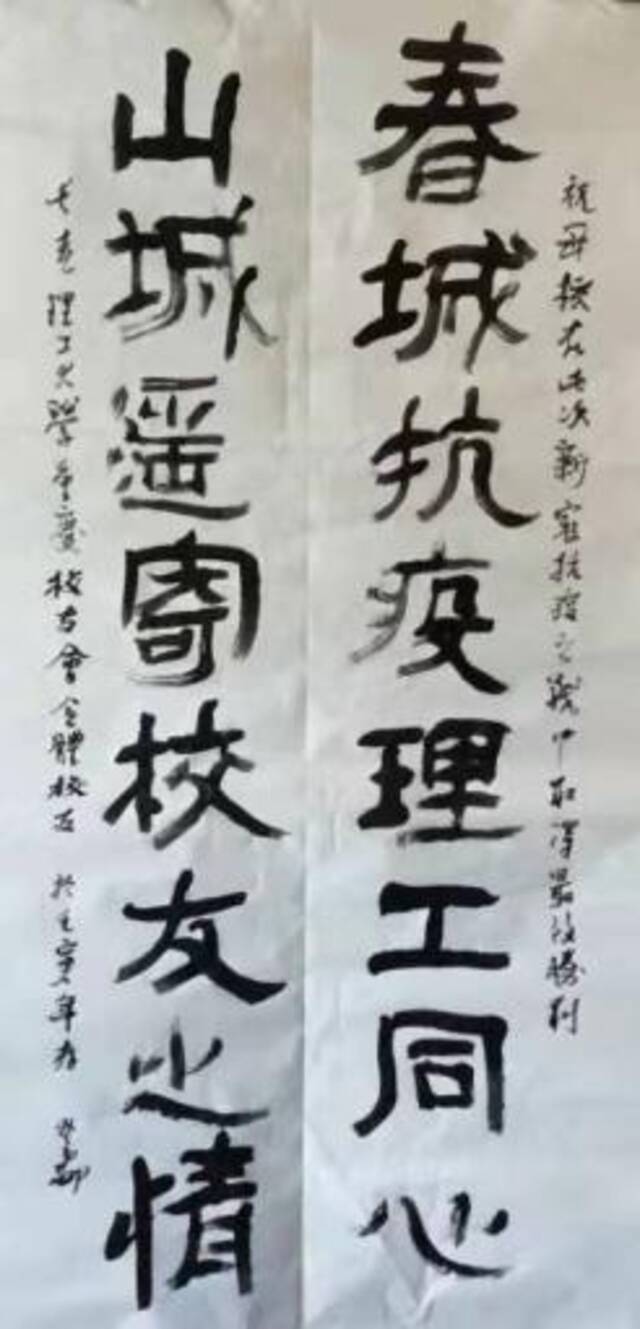 祝母校在此次新冠抗疫之战中取得最後勝利
春城抗疫理工同心
山城遥寄校友之情
長春理工大學重慶校友會全體校友 於壬寅年春